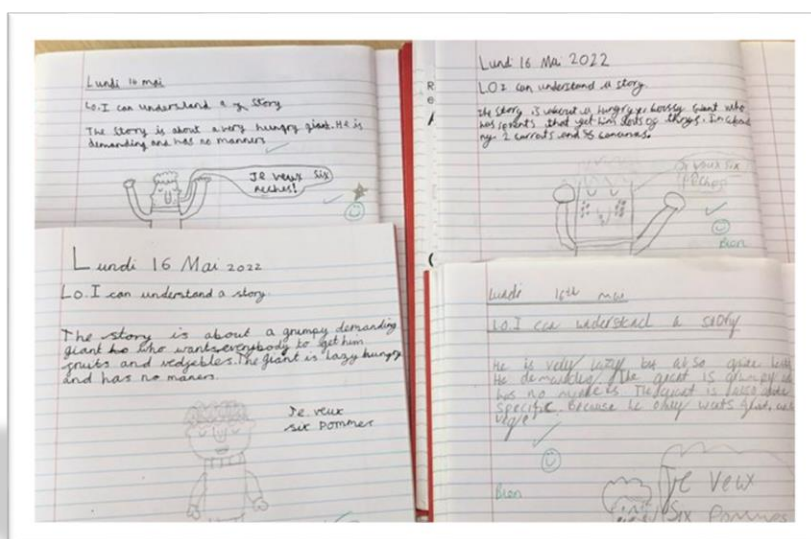 Lundi 16 mai
Lo. I can understand a story
The story is about a very hungry giant. He is
demanding and has no manners
Je veux
six
peches!
Lundi 16 Mai 2022
L.O I can understand a story.
The story is about a hungry bossy Giant who
has servents that get him lots of things.
2 carrots and 5 bananas.
Je veux six
Peches
Bien
Lundi 16 Mai 2022
Lo. I can understand a story.
The story is about a grumpy demanding
giant who wants everybody to get him
fruits and vedgebles. The giant is lazy hungry
and has no maners.
Je veux
six pommes
lundi 16th mai
LO. I can understand a story
He is very lazy but also quite
He demanding. The giant is grumpy
has no maners. The giant is also
specific. Because he only wants
vegie
Bien
Je veux
Six Pommes